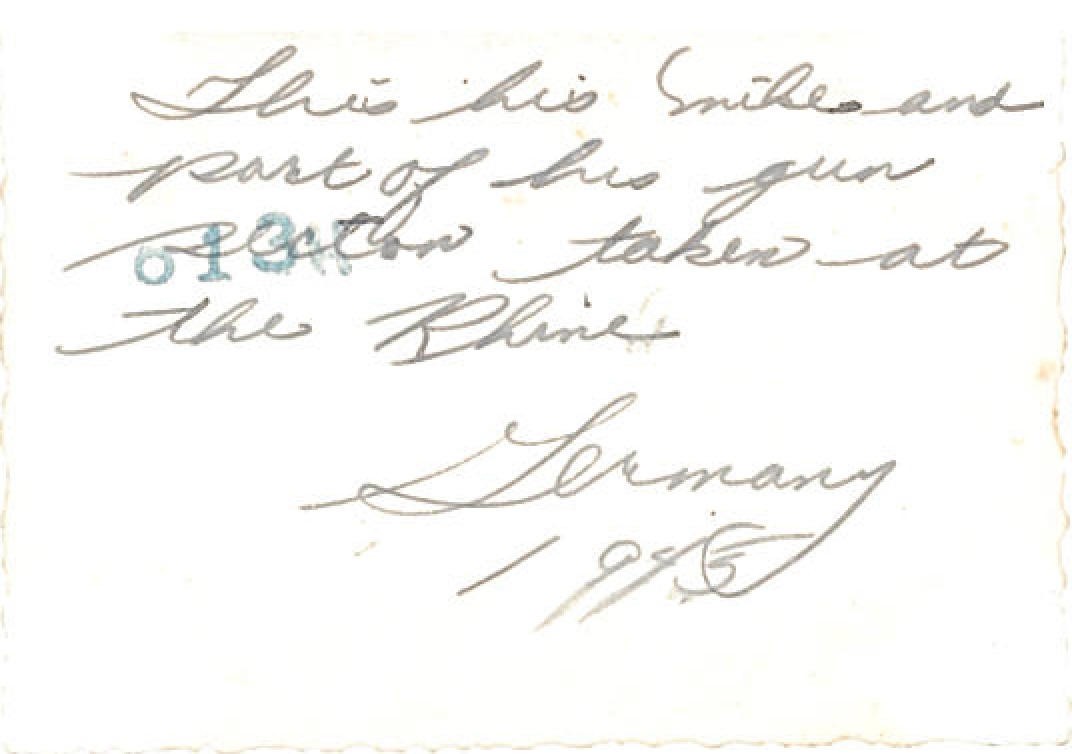 This his Mike and
part of his gun
section taken at
013
the Rhine
Germany
1945